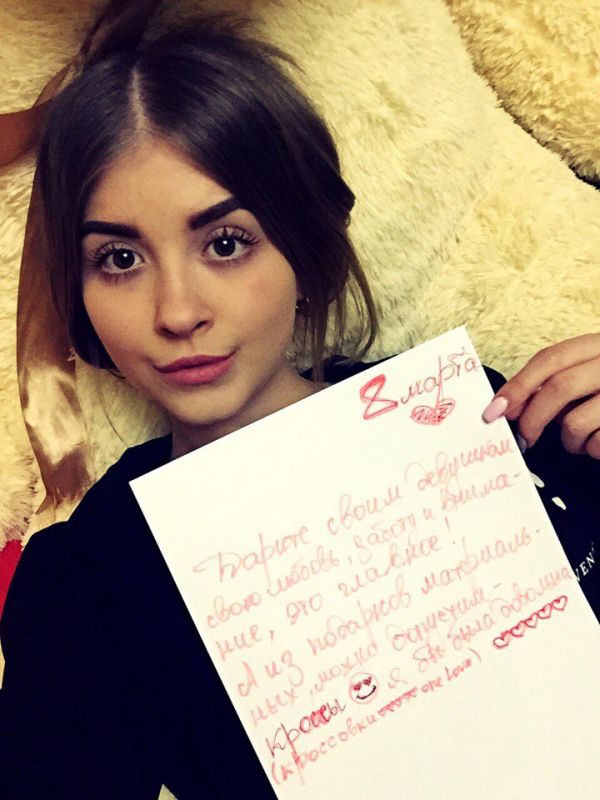 8 марта
Дарите своим девушкам
свою любовь, заботу и внима-
ние, это главное!
А из подарков материаль-
ных, можно допустим -
кроссы я бы была довольна
(кроссовки one love)
VEN